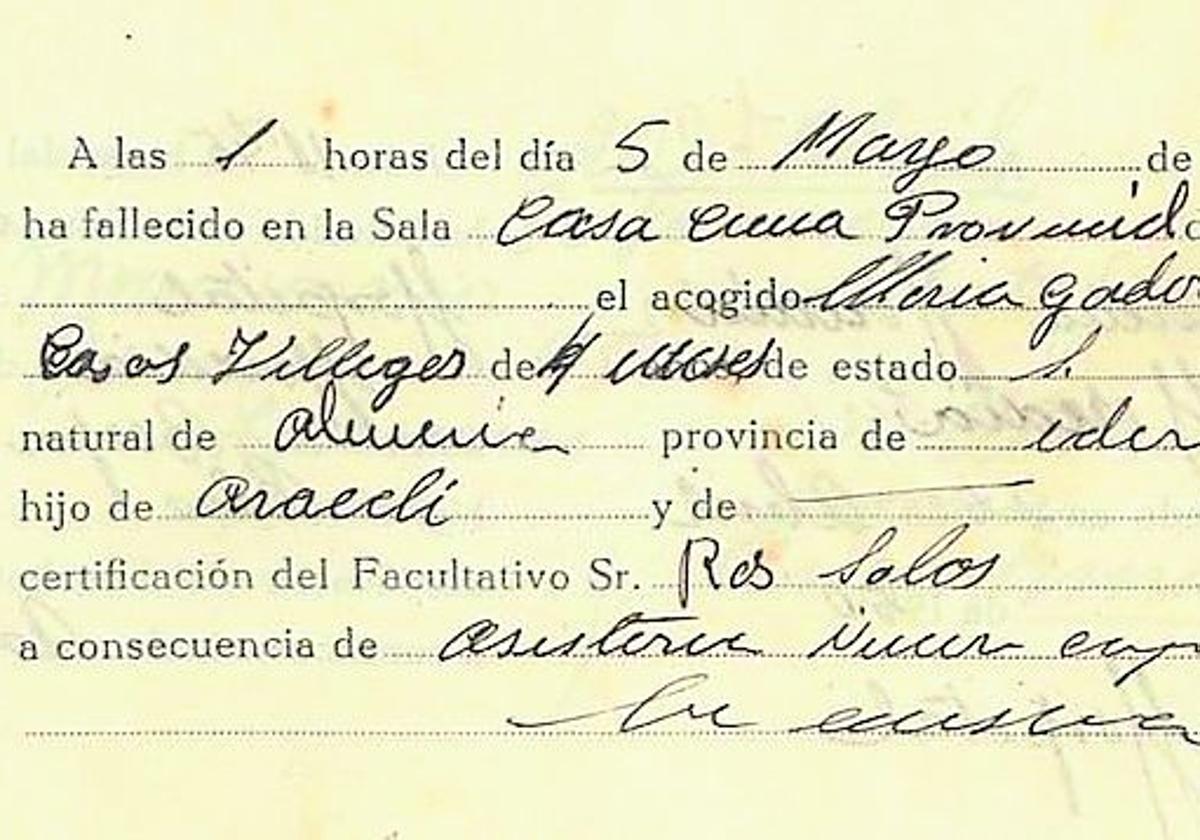 A las 1 horas del día 5 de Mayo de
ha fallecido en la Sala Casa Cuna Provincial
el acogido Maria Gador
Casas Villegas de 4 meses de estado S.
natural de Almeria provincia de idem
hijo de Araceli y de —
certificación del Facultativo Sr. Ros Salas
a consecuencia de